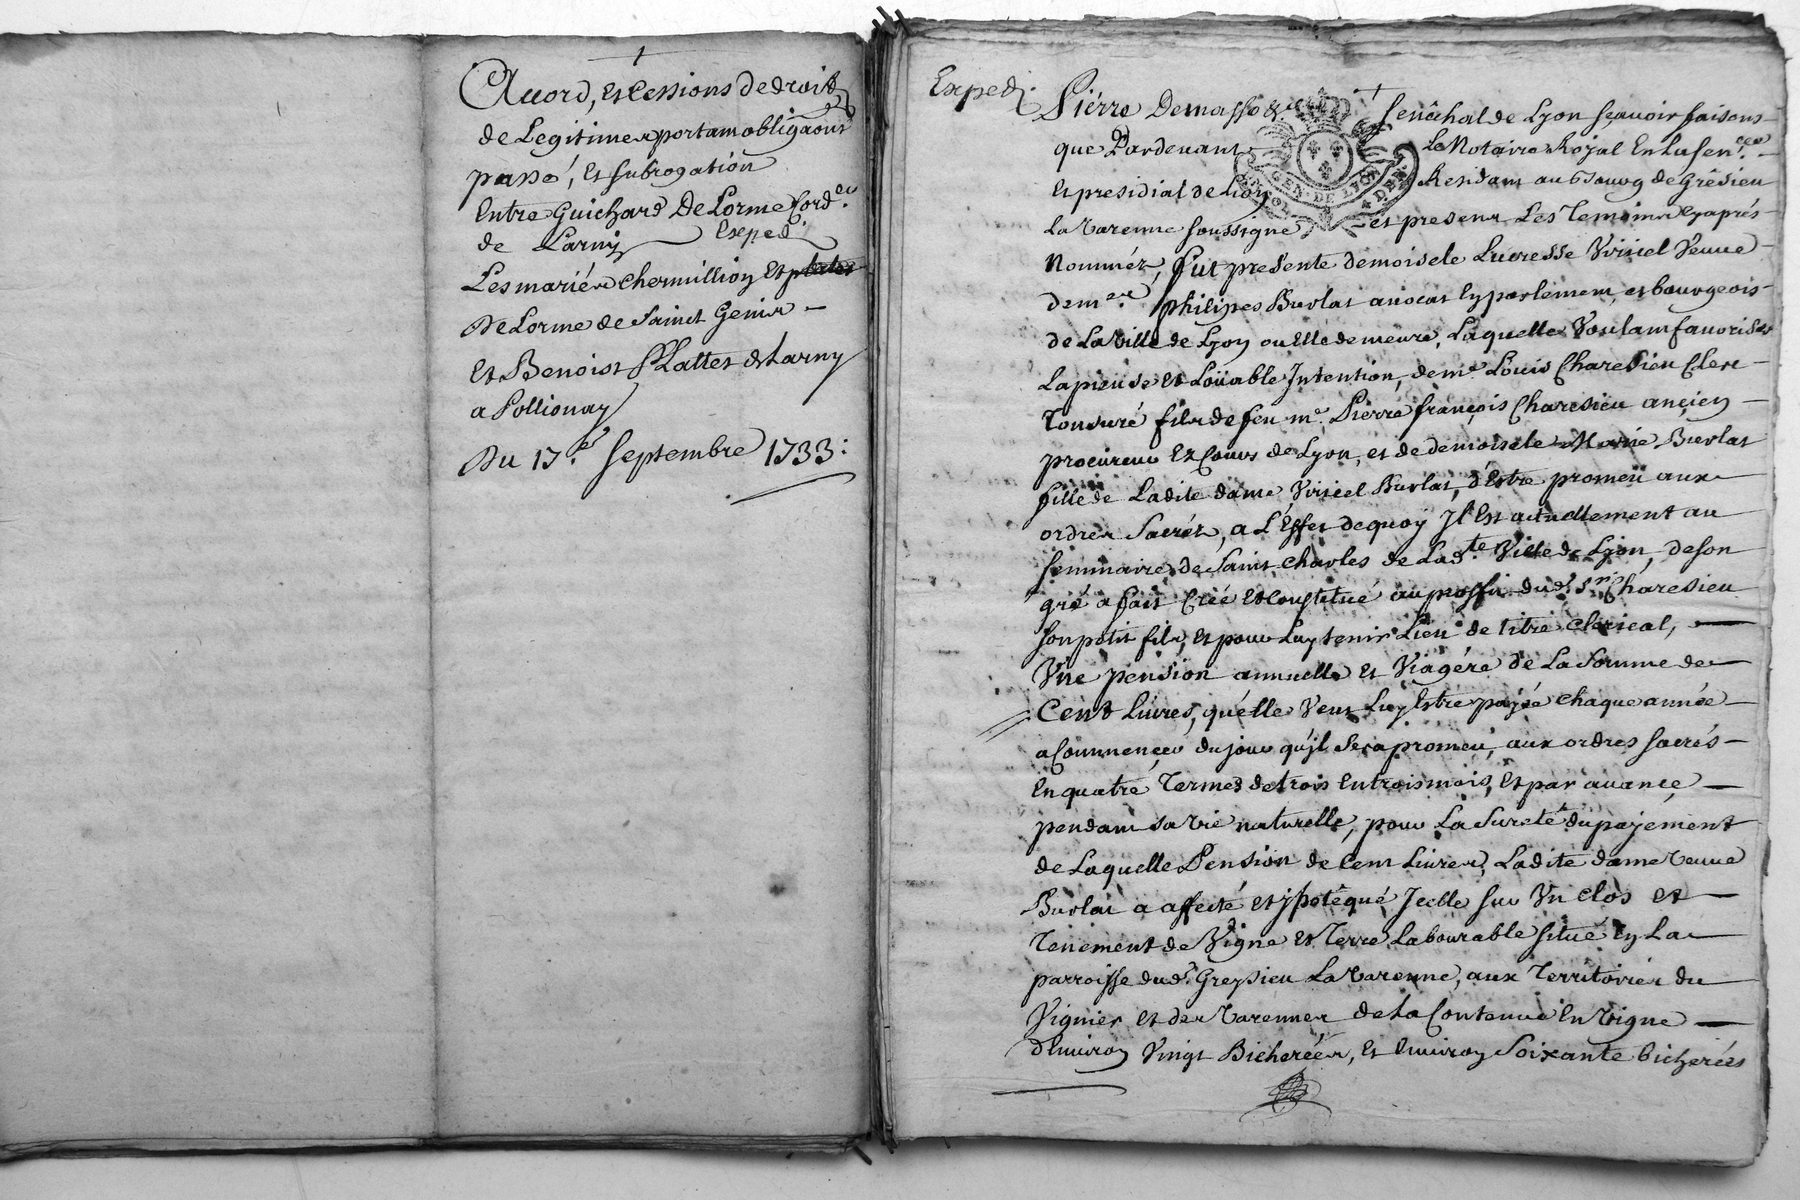 Accord, et Cessions de droits
de Legitimes portant obligaons
passé, et subrogation
Entre Guichard De Lorme Cord.er
de Larny Exped.
Les mariés Chermillion Et
De Lorme de Saint Genis –
Et Benoist Plattet de Larny
a Pollionay
Du 17.e Septembre 1733:
Exped.
Piérre Demasso &.a Senéchal de Lyon sçavoir faisons
que Pardevant Le Notaire Royal En La sen.cée
Et presidial de Lion Residant au bourg de Grésieu
La Varenne soussigné et present Les Temoins Cyaprés
Nommér, fut presente demoiselle Lucresse Viricel Veuve
de m.e Philipes Burlat avocat En parlement, et bourgeois
de La Ville de Lyon ou Elle demeure, Laquelle Voulant favoriser
La pieuse Et Loüable Intention, de m.e Loüis Charesieu Clerc
Tonsuré fils de feu m.e Pierre françois Charesieu ancien
procureur Ez Cours de Lyon, et de demoiselle Marie Burlat
fille de Ladite dame Viricel Burlat, d'Estre promeü aux
ordres Sacréz, a L'Effet dequoÿ Jl Est actuellement au
seminaire de Saint Charles de Lad.te Ville de Lyon, de son
gré a fait Créé Et Constitué au proffit dud. S.r Charesieu
son petit fils, Et pour Luy tenir Lieu de titre Clerical,
Vne pension annuelle Et Viagére de La Somme de
Cent Livres, qu'elle Veut Luy Estre payée Chaque année
a Commençer du jour qu'jl sera promeu, aux ordres sacrés
En quatre Termes de trois En trois mois, Et par avance
pendant sa Vie naturelle, pour La Sureté du payement
de Laquelle Pension de Cent Livres, Ladite dame Veuve
Burlat a affecté Et jpotéqué Jcelle sur Vn Clos Et
Tenement de Vigne Et Terre Labourable situé En La
parroisse dud. Greysieu La Varenne, aux Territoires du
Vignier et des Varennes de La Contenue En Vigne
d'Environ Vingt Bicherées, Et Environ Soixante bicherées